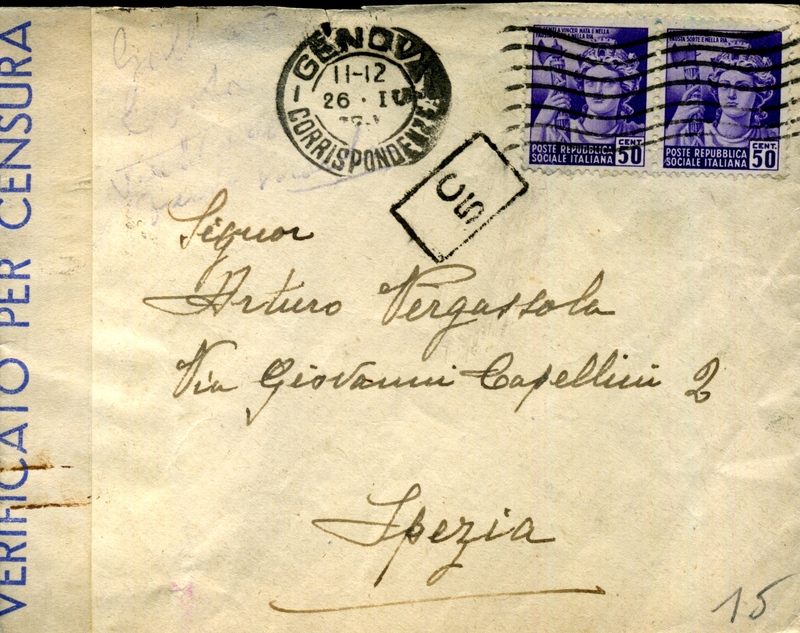 VERIFICATO PER CENSURA
GENOVA
11-12
26 · I
CORRISPONDENZE
POSTE REPUBBLICA
SOCIALE ITALIANA
CENT.
50
POSTE REPUBBLICA
SOCIALE ITALIANA
CENT.
50
C5
Signor
Arturo Vergassola
Via Giovanni Capellini 2
Spezia
15